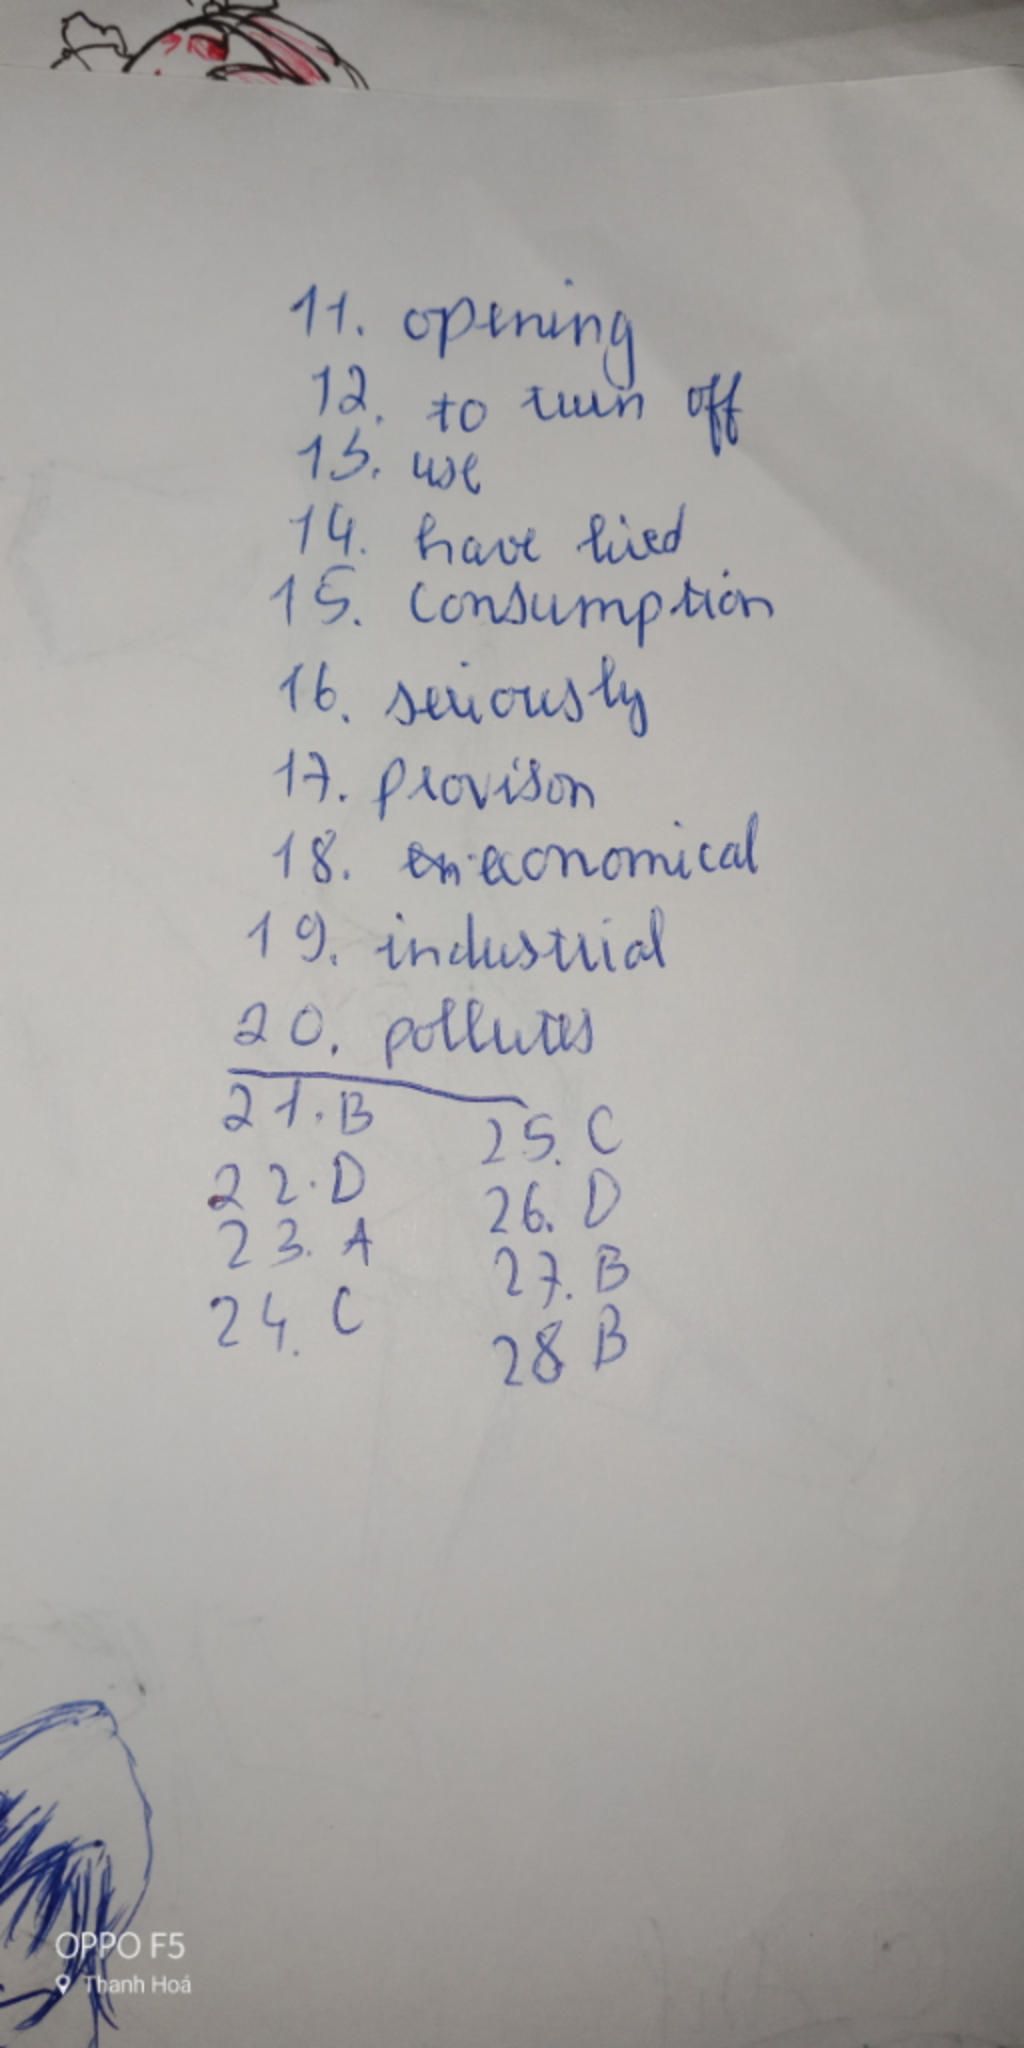 11. opening
12. to turn off
13. use
14. have lived
15. Consumption
16. seriously
17. provison
18. economical
19. industrial
20. pollutes
21. B
22. D
23. A
24. C
25. C
26. D
27. B
28 B
OPPO F5
Thanh Hoá